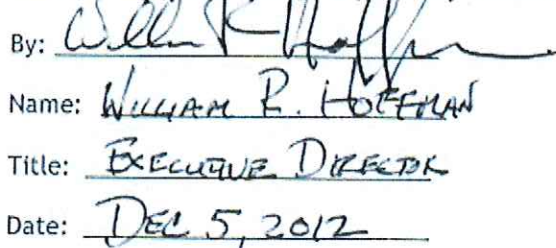 By: William R Hoffman
Name: WILLIAM R. HOFFMAN
Title: EXECUTIVE DIRECTOR
Date: DEC 5, 2012